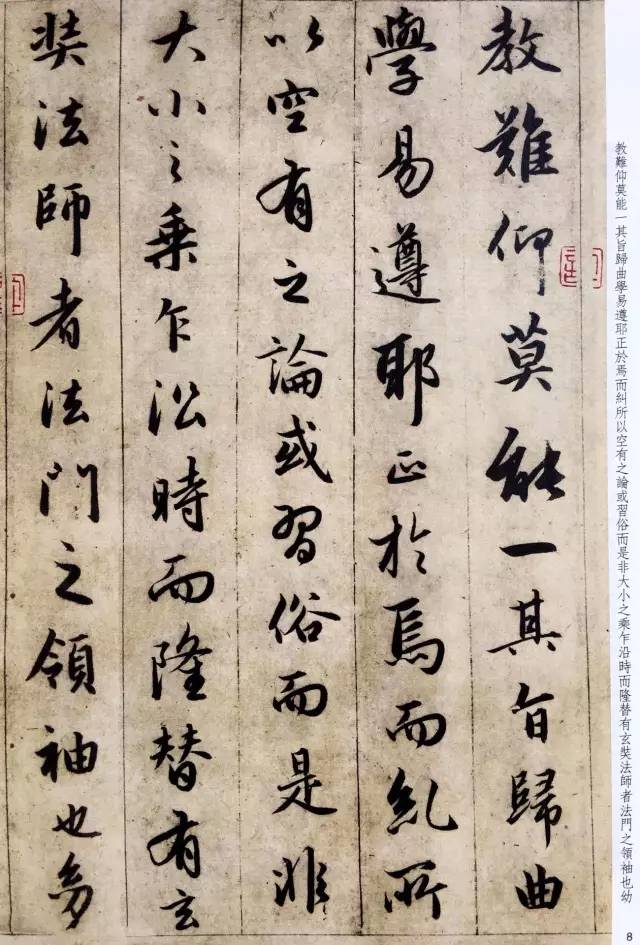 教難仰莫能一其旨歸曲
學易遵耶正於焉而糺所
以空有之論或習俗而是非
大小之乗乍沿時而隆替有玄
奘法師者法門之領袖也㓜
教難仰莫能一其旨歸曲學易遵耶正於焉而糾所以空有之論或習俗而是非大小之乘乍沿時而隆替有玄奘法師者法門之領袖也幼
8